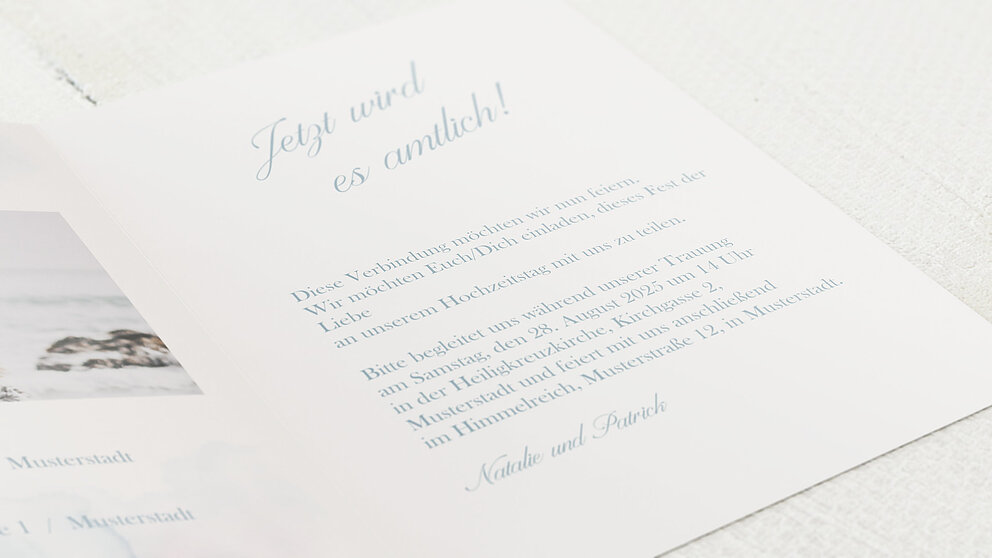 Jetzt wird
es amtlich!
Diese Verbindung möchten wir nun feiern.
Wir möchten Euch/Dich einladen, dieses Fest der
Liebe
an unserem Hochzeitstag mit uns zu teilen.
Bitte begleitet uns während unserer Trauung
am Samstag, den 28. August 2025 um 14 Uhr
in der Heiligkreuzkirche, Kirchgasse 2,
Musterstadt und feiert mit uns anschließend
im Himmelreich, Musterstraße 12, in Musterstadt.
Natalie und Patrick
Musterstadt
e 1 / Musterstadt